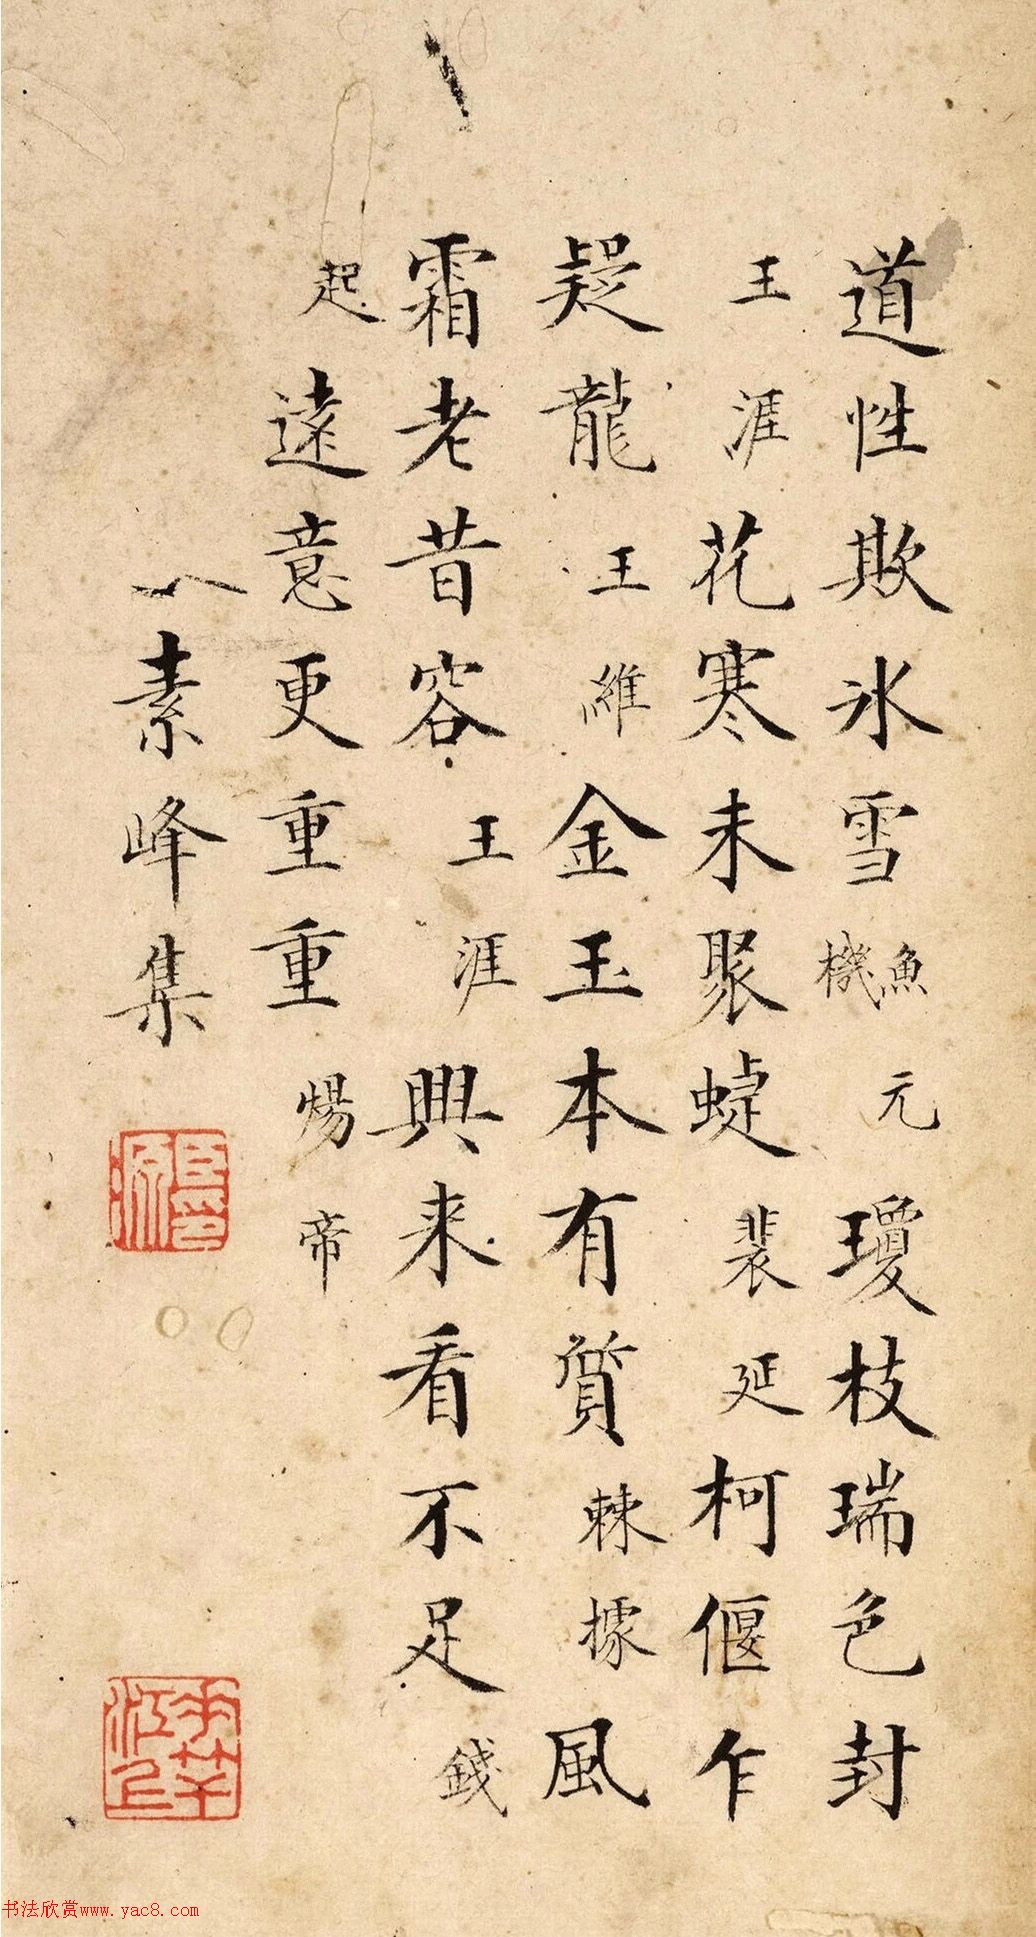 道性欺氷雪魚元機瓊枝瑞色封
王涯花寒未聚蜨裴延柯偃乍
疑龍王維金玉本有質棘據風
霜老昔容王涯興来看不足錢
起遠意更重重煬帝
八素峰集
书法欣赏www.yac8.com